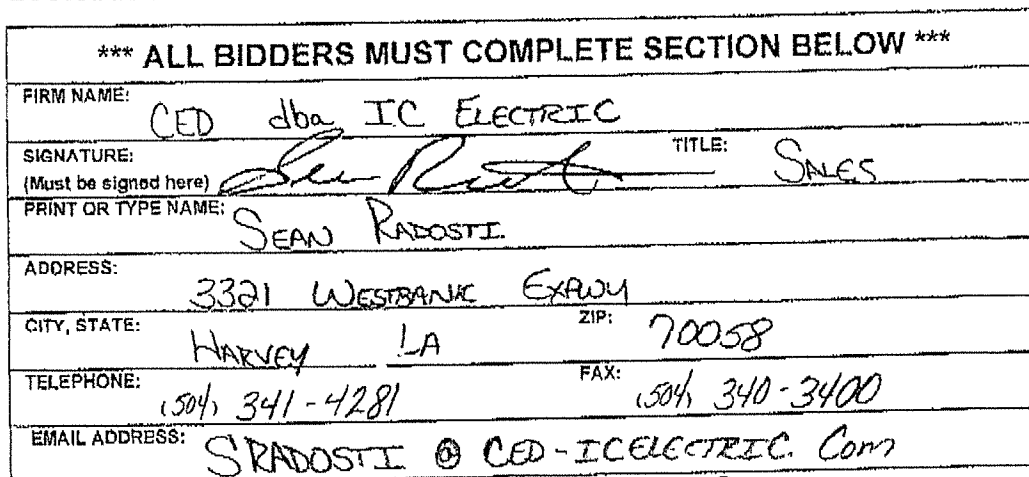 *** ALL BIDDERS MUST COMPLETE SECTION BELOW ***
FIRM NAME: CED dba IC ELECTRIC
SIGNATURE: TITLE: SALES
(Must be signed here)
PRINT OR TYPE NAME: SEAN RADOSTI
ADDRESS: 3321 WESTBANK EXPWY
CITY, STATE: HARVEY LA ZIP: 70058
TELEPHONE: (504) 341-4281 FAX: (504) 340-3400
EMAIL ADDRESS: SRADOSTI @ CED-ICELECTRIC. Com